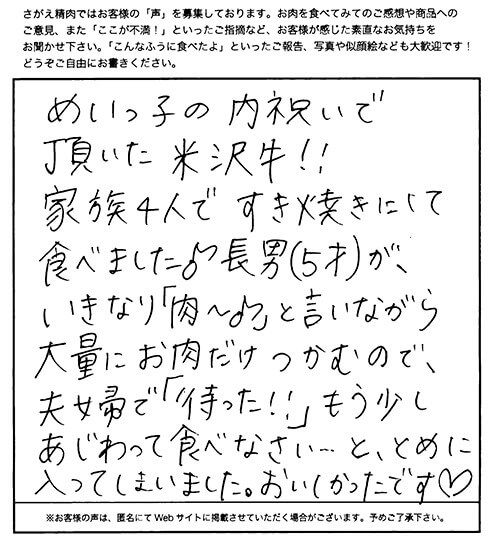 さがえ精肉ではお客様の「声」を募集しております。お肉を食べてみてのご感想や商品への
ご意見、また「ここが不満！」といったご指摘など、お客様が感じた素直なお気持ちを
お聞かせ下さい。「こんなふうに食べたよ」といったご報告、写真や似顔絵なども大歓迎です！
どうぞご自由にお書きください。
めいっ子の 内祝いで
頂いた 米沢牛!!
家族4人で すき焼きにして
食べました♪長男(5才)が、
いきなり「肉〜♪」と言いながら
大量に お肉だけ つかむので、
夫婦で「待った!!」もう少し
あじわって食べなさい…と、とめに
入ってしまいました。おいしかったです♡
※お客様の声は、匿名にてWebサイトに掲載させていただく場合がございます。予めご了承下さい。